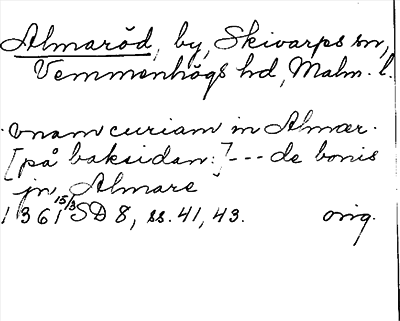 Almaröd, by, Skivarps sn,
Vemmenhögs hd, Malm. l.
unam curiam in Almær.
[på baksidan:] --- de bonis
jn Almare
1361 15/3 SD 8, ss. 41, 43. orig.